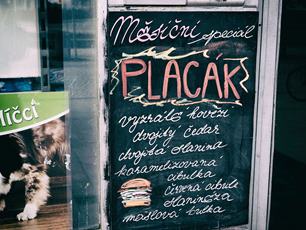 Měsíční speciál
PLACÁK
vyzrálé hovězí
dvojitý čedar
dvojitá slanina
karamelizovaná
cibulka
červená cibule
slaninóza
máslová bulka
líčci